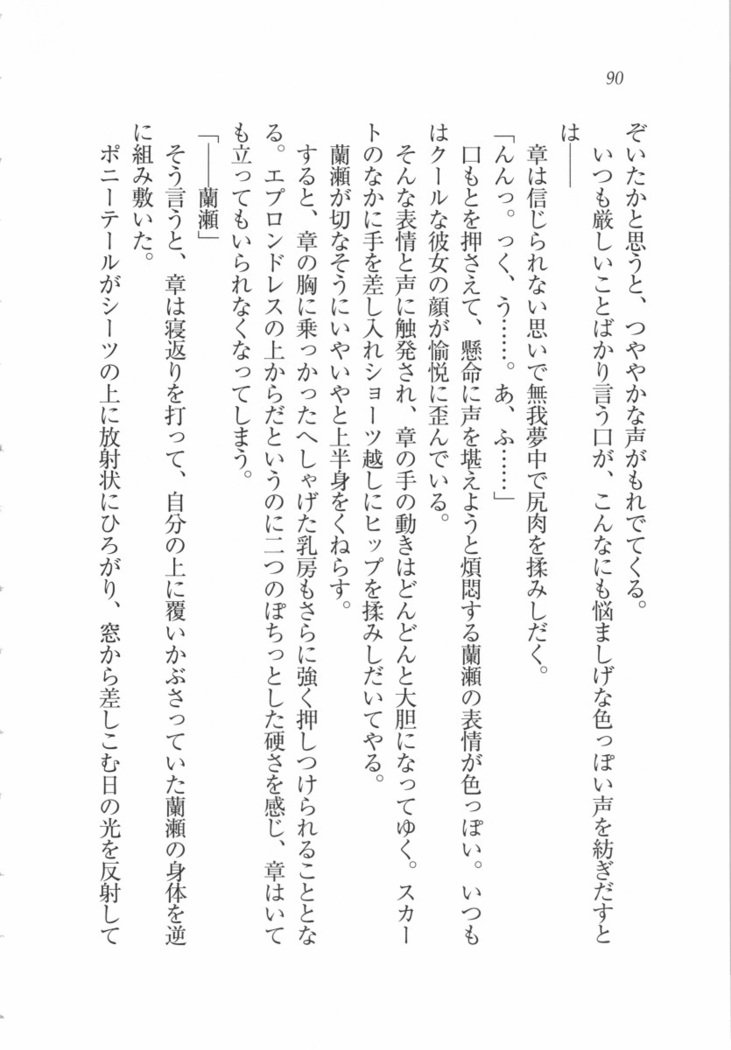 90
ぞいたかと思うと、つややかな声がもれでてくる。
いつも厳しいことばかり言う口が、こんなにも悩ましげな色っぽい声を紡ぎだすと
は――
章は信じられない思いで無我夢中で尻肉を揉みしだく。
「んんっ。っく、う……。あ、ふ……」
口もとを押さえて、懸命に声を堪えようと煩悶する蘭瀬の表情が色っぽい。いつも
はクールな彼女の顔が愉悦に歪んでいる。
そんな表情と声に触発され、章の手の動きはどんどんと大胆になってゆく。スカー
トのなかに手を差し入れショーツ越しにヒップを揉みしだいてやる。
蘭瀬が切なそうにいやいやと上半身をくねらす。
すると、章の胸に乗っかったへしゃげた乳房もさらに強く押しつけられることとな
る。エプロンドレスの上からだというのに二つのぽちっとした硬さを感じ、章はいて
も立ってもいられなくなってしまう。
「――蘭瀬」
そう言うと、章は寝返りを打って、自分の上に覆いかぶさっていた蘭瀬の身体を逆
に組み敷いた。
ポニーテールがシーツの上に放射状にひろがり、窓から差しこむ日の光を反射して